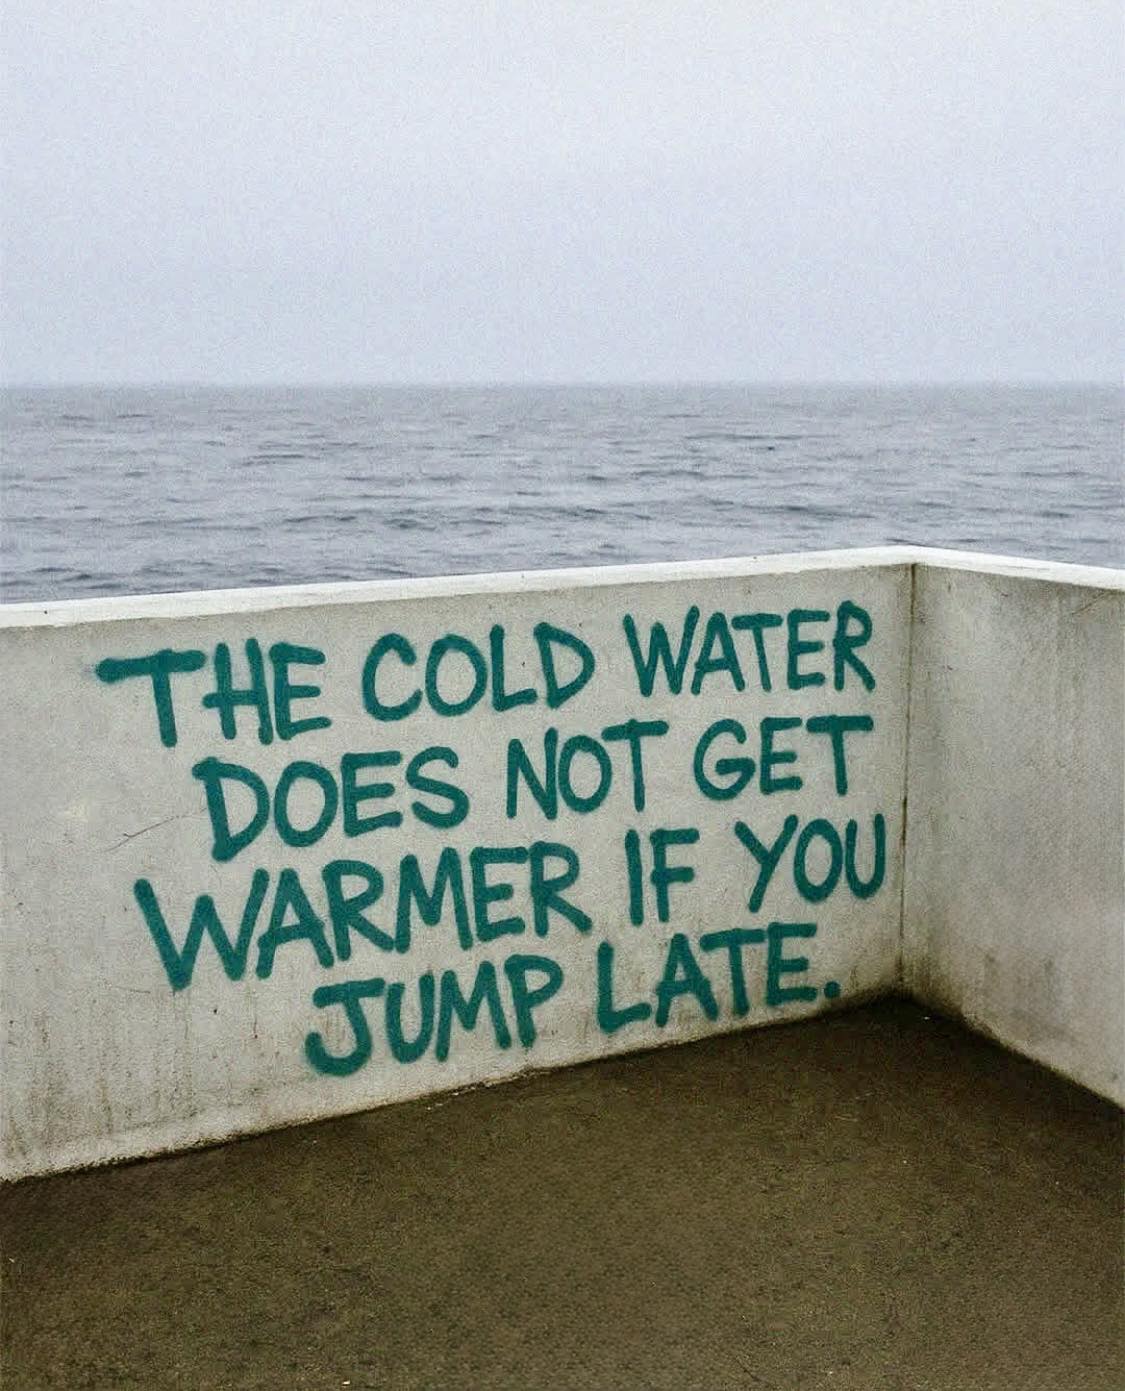 THE COLD WATER
DOES NOT GET
WARMER IF YOU
JUMP LATE.